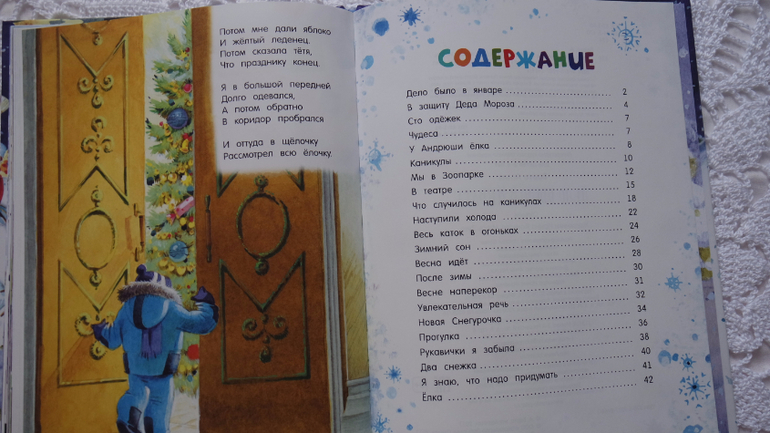 Потом мне дали яблоко
И жёлтый леденец.
Потом сказала тётя,
Что празднику конец.
Я в большой передней
Долго одевался,
А потом обратно
В коридор пробрался
И оттуда в щёлочку
Рассмотрел всю ёлочку.
СОДЕРЖАНИЕ
Дело было в январе 2
В защиту Деда Мороза 4
Сто одёжек 7
Чудеса 7
У Андрюши ёлка 8
Каникулы 10
Мы в Зоопарке 12
В театре 15
Что случилось на каникулах 18
Наступили холода 22
Весь каток в огоньках 24
Зимний сон 26
Весна идёт 28
После зимы 30
Весне наперекор 31
Увлекательная речь 32
Новая Снегурочка 34
Прогулка 36
Рукавички я забыла 38
Два снежка 40
Я знаю, что надо придумать 41
Ёлка 42